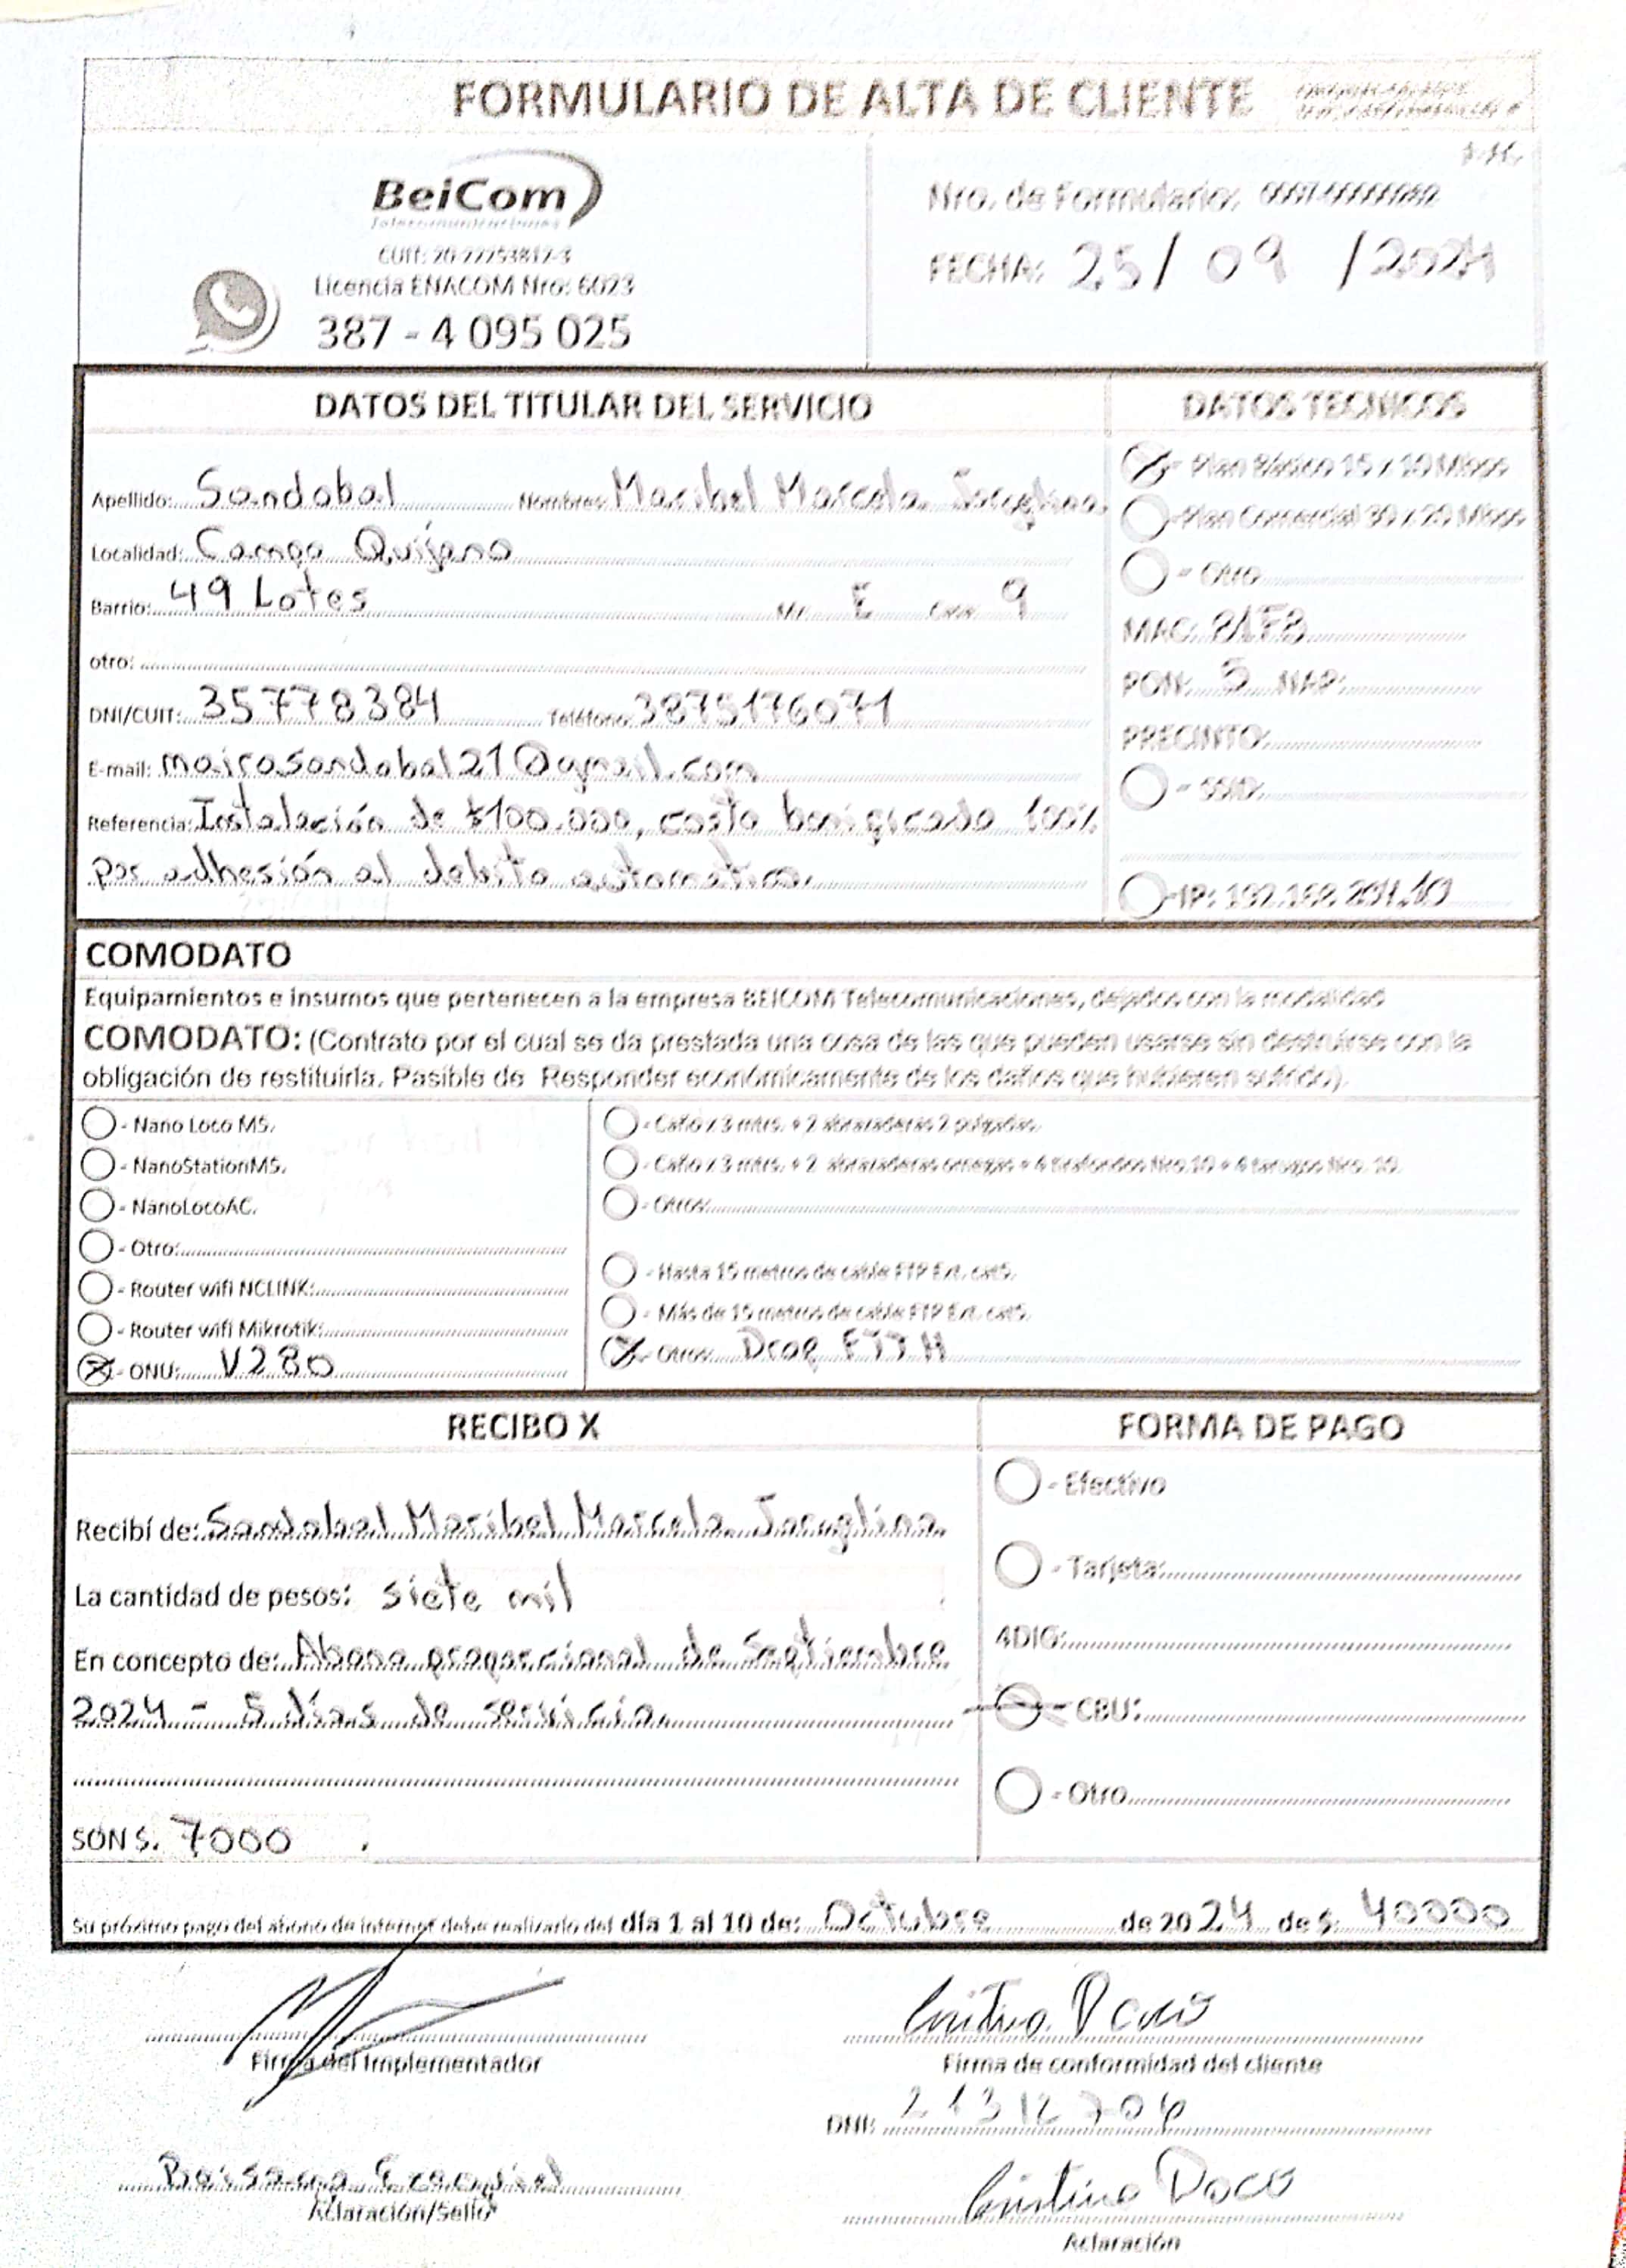 FORMULARIO DE ALTA DE CLIENTE
BeiCom
Telecomunicaciones
CUIT: 20-22253812-3
Licencia ENACOM Nro: 6023
387 - 4 095 025
Nro. de Formulario:
FECHA: 25/ 09 /2024
DATOS DEL TITULAR DEL SERVICIO
Apellido: Sandobal Nombres: Maribel Marcela
Localidad: Campo Quijano
Barrio: 49 Lotes Mz. E Casa 9
otro:
DNI/CUIT: 35778384 Teléfono: 3875176071
E-mail: mairasandabal21@gmail.com
Referencia: Instalación de $100.000, costo bonificado 100%
por adhesión al debito automatico.
DATOS TECNICOS
- Plan Básico 15 x 10 Mbps
- Plan Comercial 30 x 20 Mbps
- Otro
MAC:
PON: 5 NAP:
PRECINTO:
- SSID:
- IP:
COMODATO
Equipamientos e insumos que pertenecen a la empresa BEICOM Telecomunicaciones, dejados con la modalidad
COMODATO: (Contrato por el cual se da prestada una cosa de las que pueden usarse sin destruirse con la
obligación de restituirla. Pasible de Responder económicamente de los daños que hubieren sufrido).
- Nano Loco M5.
- NanoStationM5.
- NanoLocoAC.
- Otro:
- Router wifi NCLINK:
- Router wifi Mikrotik:
- ONU: V280
- Caño x 3 mtrs. + 2 abrazaderas 2 pulgadas.
- Caño x 3 mtrs. + 2 abrazaderas omegas + 4 tirafondos Nro.10 + 4 tarugos Nro. 10.
- Otros:
- Hasta 15 metros de cable FTP Ext. cat5.
- Más de 15 metros de cable FTP Ext. cat5.
- Otros: Drop FTTH
RECIBO X
Recibí de: Sandabal Maribel Marcela
La cantidad de pesos: siete mil
En concepto de: Abono proporcional de Septiembre
2024 - 5 días de servicio.
SON $. 7000
FORMA DE PAGO
- Efectivo
- Tarjeta:
4DIG:
- CBU:
- Otro
Su próximo pago del abono de internet debe realizarlo del día 1 al 10 de: Octubre de 2024 de $. 40000
Firma del Implementador
Firma de conformidad del cliente
DNI:
Aclaración/Sello
Aclaración